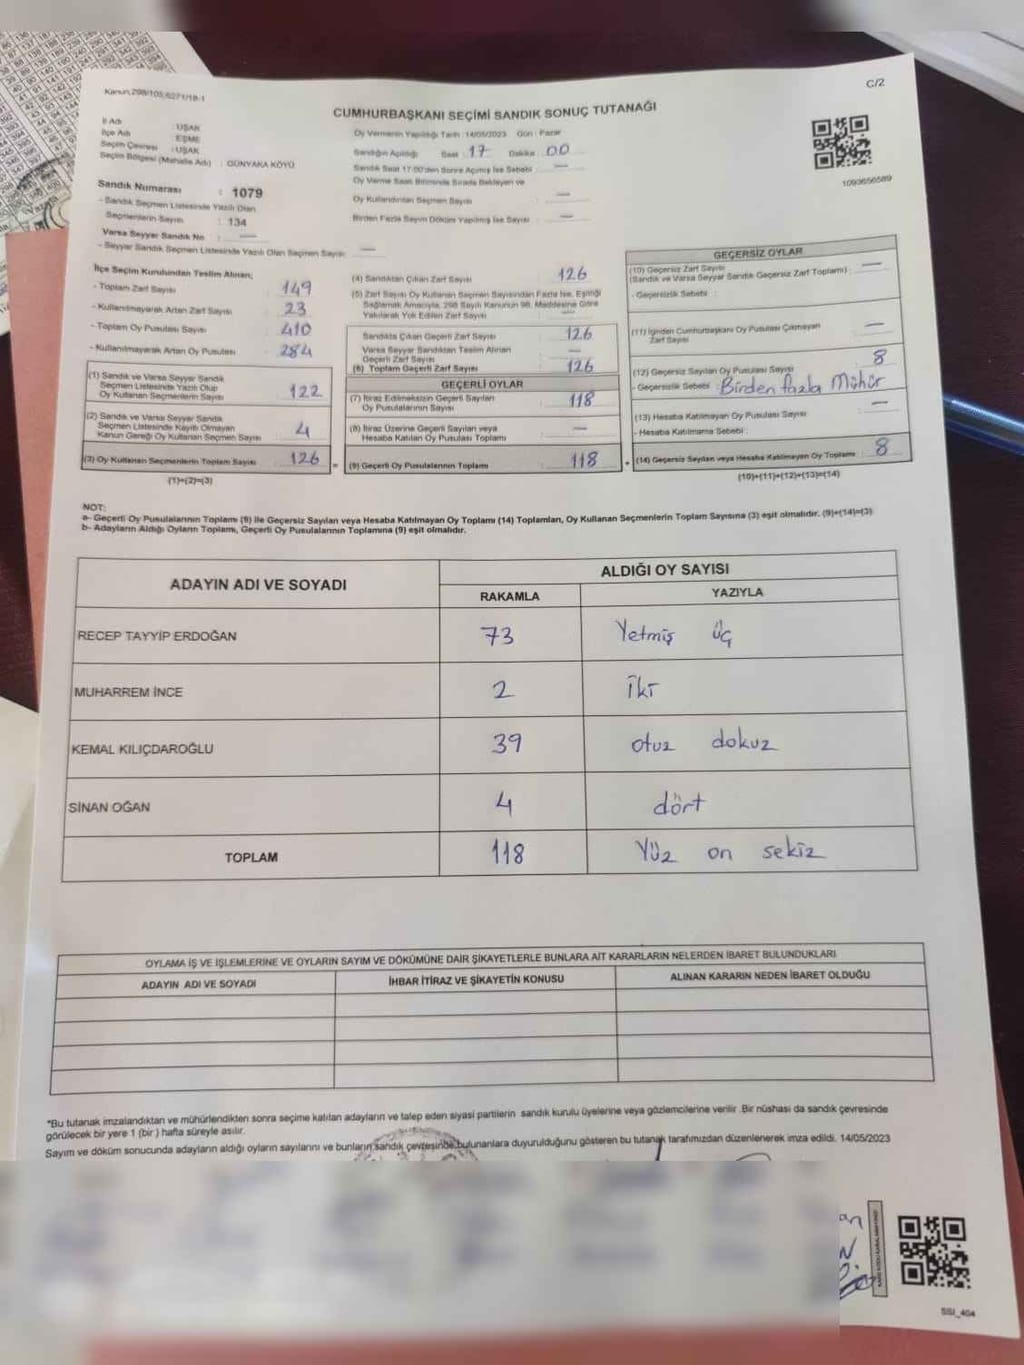 Kanun:298/105,6271/18-1
C/2
CUMHURBAŞKANI SEÇİMİ SANDIK SONUÇ TUTANAĞI
İl Adı : UŞAK
İlçe Adı : EŞME
Seçim Çevresi : UŞAK
Seçim Bölgesi (Mahalle Adı) : GÜNYAKA KÖYÜ
Sandık Numarası : 1079
- Sandık Seçmen Listesinde Yazılı Olan
Seçmenlerin Sayısı : 134
Varsa Seyyar Sandık No : —
- Seyyar Sandık Seçmen Listesinde Yazılı Olan Seçmen Sayısı: —
Oy Vermenin Yapıldığı Tarih : 14/05/2023 Gün : Pazar
Sandığın Açıldığı Saat 17 Dakika 00
Sandık Saat 17:00'den Sonra Açılmış İse Sebebi —
Oy Verme Saati Bitiminde Sırada Bekleyen ve
Oy Kullandırılan Seçmen Sayısı : —
Birden Fazla Sayım Döküm Yapılmış İse Sayısı : —
1093656589
İlçe Seçim Kurulundan Teslim Alınan;
- Toplam Zarf Sayısı : 149
- Kullanılmayarak Artan Zarf Sayısı : 23
- Toplam Oy Pusulası Sayısı : 410
- Kullanılmayarak Artan Oy Pusulası : 284
(1) Sandık ve Varsa Seyyar Sandık
Seçmen Listesinde Yazılı Olup
Oy Kullanan Seçmenlerin Sayısı : 122
(2) Sandık ve Varsa Seyyar Sandık
Seçmen Listesinde Kayıtlı Olmayan
Kanun Gereği Oy Kullanan Seçmen Sayısı : 4
(3) Oy Kullanan Seçmenlerin Toplam Sayısı : 126
(1)+(2)=(3)
(4) Sandıktan Çıkan Zarf Sayısı : 126
(5) Zarf Sayısı Oy Kullanan Seçmen Sayısından Fazla İse, Eşitliği
Sağlamak Amacıyla, 298 Sayılı Kanunun 98. Maddesine Göre
Yakılarak Yok Edilen Zarf Sayısı : —
Sandıkta Çıkan Geçerli Zarf Sayısı : 126
Varsa Seyyar Sandıktan Teslim Alınan
Geçerli Zarf Sayısı : —
(6) Toplam Geçerli Zarf Sayısı : 126
GEÇERLİ OYLAR
(7) İtiraz Edilmeksizin Geçerli Sayılan
Oy Pusulalarının Sayısı : 118
(8) İtiraz Üzerine Geçerli Sayılan veya
Hesaba Katılan Oy Pusulası Toplamı : —
(9) Geçerli Oy Pusulalarının Toplamı : 118
GEÇERSİZ OYLAR
(10) Geçersiz Zarf Sayısı
(Sandık ve Varsa Seyyar Sandık Geçersiz Zarf Toplamı) : —
- Geçersizlik Sebebi :
(11) İçinden Cumhurbaşkanı Oy Pusulası Çıkmayan
Zarf Sayısı : —
(12) Geçersiz Sayılan Oy Pusulası Sayısı : 8
- Geçersizlik Sebebi : Birden fazla Mühür
(13) Hesaba Katılmayan Oy Pusulası Sayısı : —
- Hesaba Katılmama Sebebi :
(14) Geçersiz Sayılan veya Hesaba Katılmayan Oy Toplamı : 8
(10)+(11)+(12)+(13)=(14)
NOT:
a- Geçerli Oy Pusulalarının Toplamı (9) ile Geçersiz Sayılan veya Hesaba Katılmayan Oy Toplamı (14) Toplamları, Oy Kullanan Seçmenlerin Toplam Sayısına (3) eşit olmalıdır. (9)+(14)=(3)
b- Adayların Aldığı Oyların Toplamı, Geçerli Oy Pusulalarının Toplamına (9) eşit olmalıdır.
ADAYIN ADI VE SOYADI
ALDIĞI OY SAYISI
RAKAMLA YAZIYLA
RECEP TAYYİP ERDOĞAN 73 Yetmiş üç
MUHARREM İNCE 2 İki
KEMAL KILIÇDAROĞLU 39 otuz dokuz
SİNAN OĞAN 4 dört
TOPLAM 118 Yüz on sekiz
OYLAMA İŞ VE İŞLEMLERİNE VE OYLARIN SAYIM VE DÖKÜMÜNE DAİR ŞİKAYETLERLE BUNLARA AİT KARARLARIN NELERDEN İBARET BULUNDUKLARI
ADAYIN ADI VE SOYADI İHBAR İTİRAZ VE ŞİKAYETİN KONUSU ALINAN KARARIN NEDEN İBARET OLDUĞU
*Bu tutanak imzalandıktan ve mühürlendikten sonra seçime katılan adayların ve talep eden siyasi partilerin sandık kurulu üyelerine veya gözlemcilerine verilir .Bir nüshası da sandık çevresinde
görülecek bir yere 1 (bir ) hafta süreyle asılır.
Sayım ve döküm sonucunda adayların aldığı oyların sayılarını ve bunların sandık çevresinde bulunanlara duyurulduğunu gösteren bu tutanak tarafımızdan düzenlenerek imza edildi. 14/05/2023
SSI_404